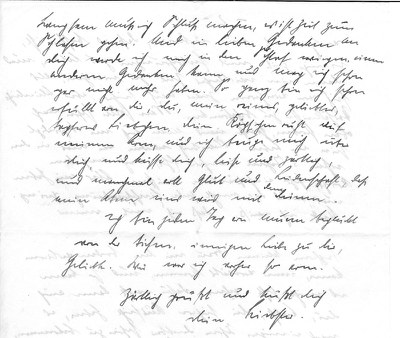 Langsam muß ich Schluß machen, es ist Zeit zum
Schlafen gehen. Und in lieben Gedanken an
dich werde ich mich in den Schlaf wiegen, einen
anderen Gedanken kann und mag ich schon
gar nicht mehr haben. So ganz bin ich schon
erfüllt von dir, du, mein einziger, geliebter,
Liebchen, dein Köpfchen ruht auf
meinem Arm, und ich beuge mich über
dich und küsse dich, leise und zärtlich,
und manchmal voll Glut und Leidenschaft, daß
mein Atem eins wird mit dem Deinen.
Ich bin jeden Tag von neuem beglückt
von der tiefen, innigen Liebe zu dir,
Geliebte. Wie war ich vorher so arm.
Zärtlich grüßt und küßt dich
dein Liebster.